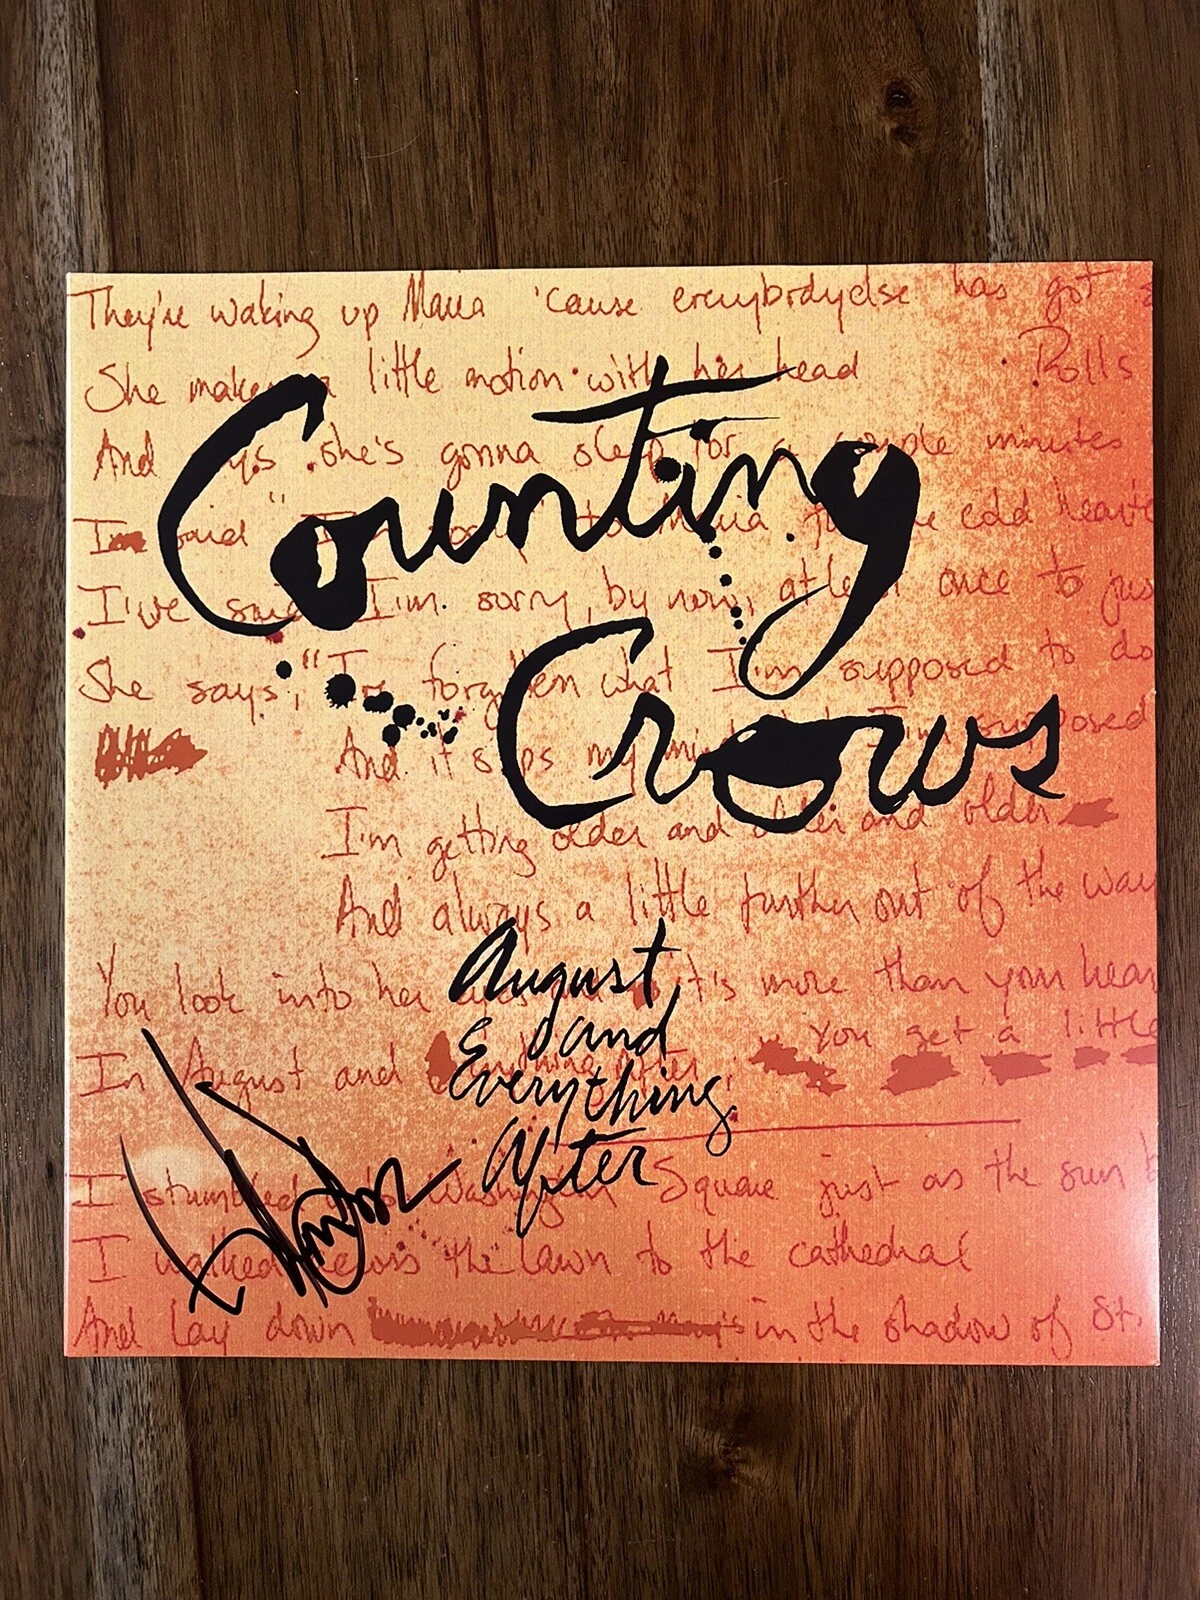 They're waking up Maria 'cause everybodyelse has got
She makes a little motion with her head Rolls
And says she's gonna sleep for a couple minutes
I'm said "I'm sorry" to Maria for the cold hearte
I've said I'm sorry, by now, at least once to jus
She says, "I've forgotten what I'm supposed to do
And it slips my mind what I'm supposed
I'm getting older and older and older
And always a little further out of the way
You look into her and it's more than your hear
You get a little
In August and Everything After,
I stumbled into Washington Square just as the sun b
I walked across the lawn to the cathedral
And lay down in the shadow of St.
Counting
Crows
August
and
Everything
After